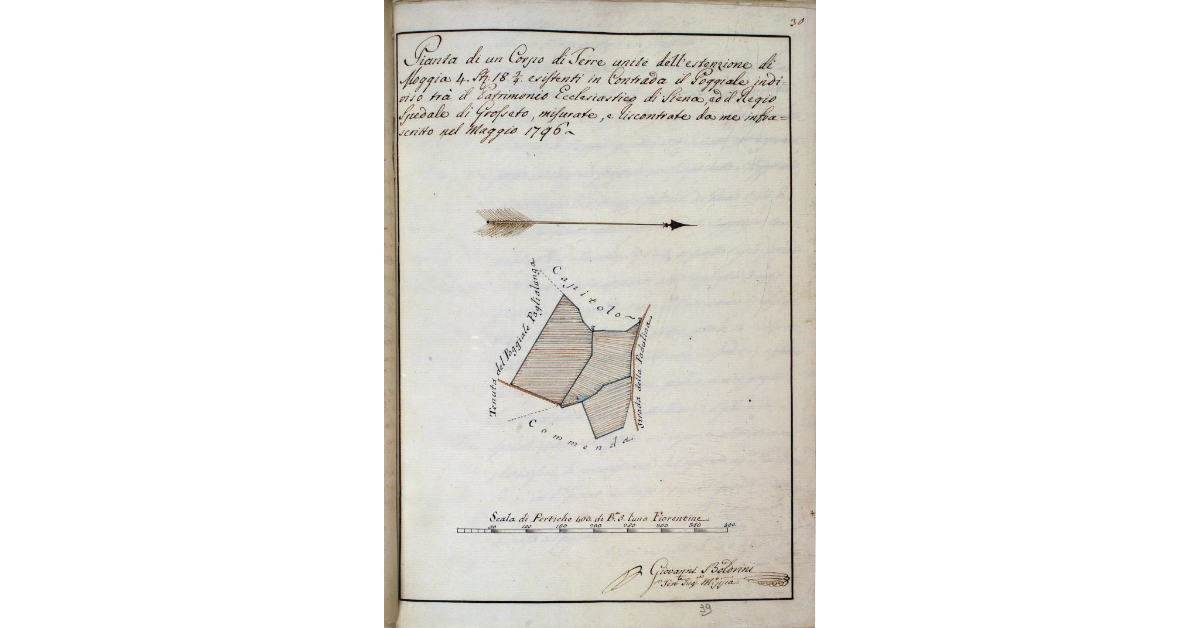 30
Pianta di un Corpo di Terre unite dell'estenzione di
Moggia 4. St. 18 3/4 esistenti in Contrada il Poggiale indi-
viso trà il Patrimonio Ecclesiastico di Siena, ed il Regio
Spedale di Grosseto, misurate, e riscontrate da me infra=
scritto nel Maggio 1796~
Capitolo~
Tenuta del Poggiale Paglialunga
Strada della Padulina
Commenda
Scala di Pertiche 400. di Br. 5. l'una Fiorentine
50 100 150 200 250 300 350 400
Giovanni Boldrini
39